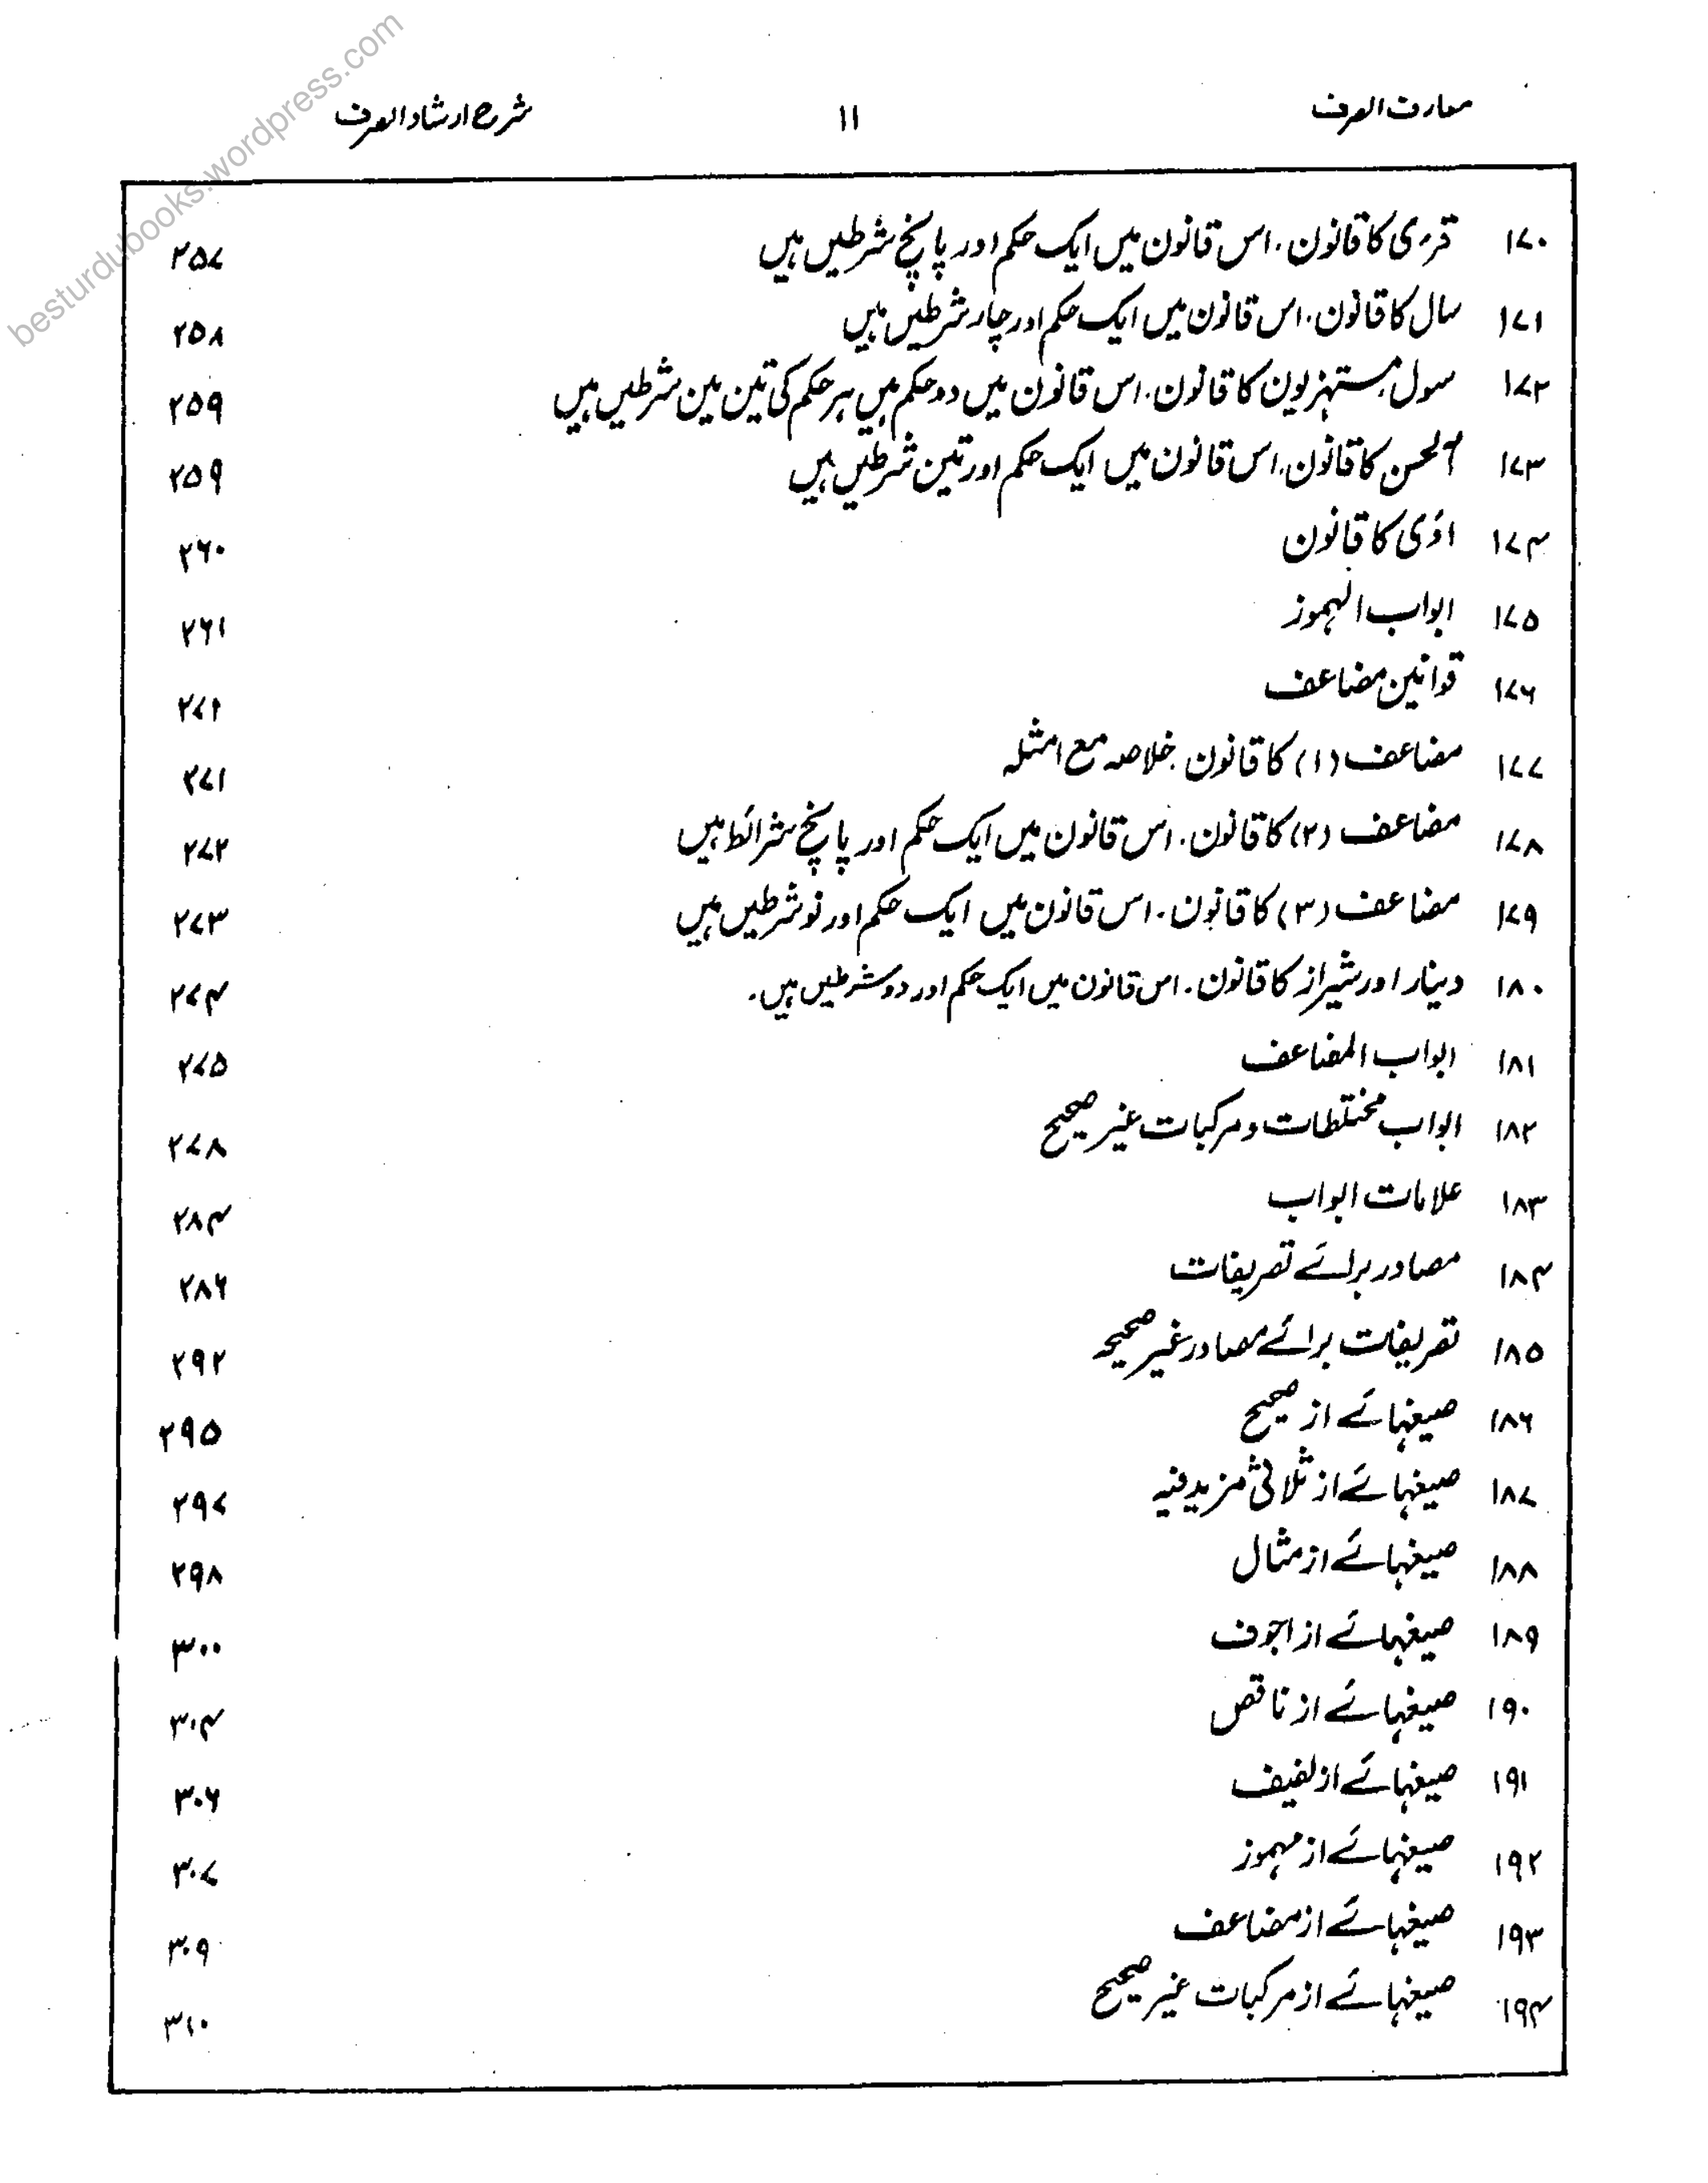 معارف الصرف ۱۱ شرح ارشاد الصرف
۱۷۰ قرءی کا قانون. اس قانون میں ایک حکم اور پانچ شرطیں ہیں ۲۵۷
۱۷۱ سال کا قانون. اس قانون میں ایک حکم اور چار شرطیں ہیں ۲۵۸
۱۷۲ سول مستہزیون کا قانون. اس قانون میں دو حکم ہیں ہر حکم کی تین تین شرطیں ہیں ۲۵۹
۱۷۳ آلحسن کا قانون. اس قانون میں ایک حکم اور تین شرطیں ہیں ۲۵۹
۱۷۴ اؤی کا قانون ۲۶۰
۱۷۵ ابواب المہموز ۲۶۱
۱۷۶ قوانین مضاعف ۲۷۱
۱۷۷ مضاعف (۱) کا قانون. خلاصہ مع امثلہ ۲۷۱
۱۷۸ مضاعف (۲) کا قانون. اس قانون میں ایک حکم اور پانچ شرائط ہیں ۲۷۲
۱۷۹ مضاعف (۳) کا قانون. اس قانون میں ایک حکم اور نو شرطیں ہیں ۲۷۳
۱۸۰ دینار اور شیراز کا قانون. اس قانون میں ایک حکم اور دو شرطیں ہیں. ۲۷۴
۱۸۱ ابواب المضاعف ۲۷۵
۱۸۲ ابواب مختلطات و مرکبات غیر صحیح ۲۷۸
۱۸۳ علامات ابواب ۲۸۴
۱۸۴ مصادر برائے تصریفات ۲۸۶
۱۸۵ تصریفات برائے مصادر غیر صحیحہ ۲۹۲
۱۸۶ صیغہائے از صحیح ۲۹۵
۱۸۷ صیغہائے از ثلاثی مزید فیہ ۲۹۷
۱۸۸ صیغہائے از مثال ۲۹۸
۱۸۹ صیغہائے از اجوف ۳۰۰
۱۹۰ صیغہائے از ناقص ۳۰۴
۱۹۱ صیغہائے از لفیف ۳۰۶
۱۹۲ صیغہائے از مہموز ۳۰۷
۱۹۳ صیغہائے از مضاعف ۳۰۹
۱۹۴ صیغہائے از مرکبات غیر صحیح ۳۱۰
besturdubooks.wordpress.com